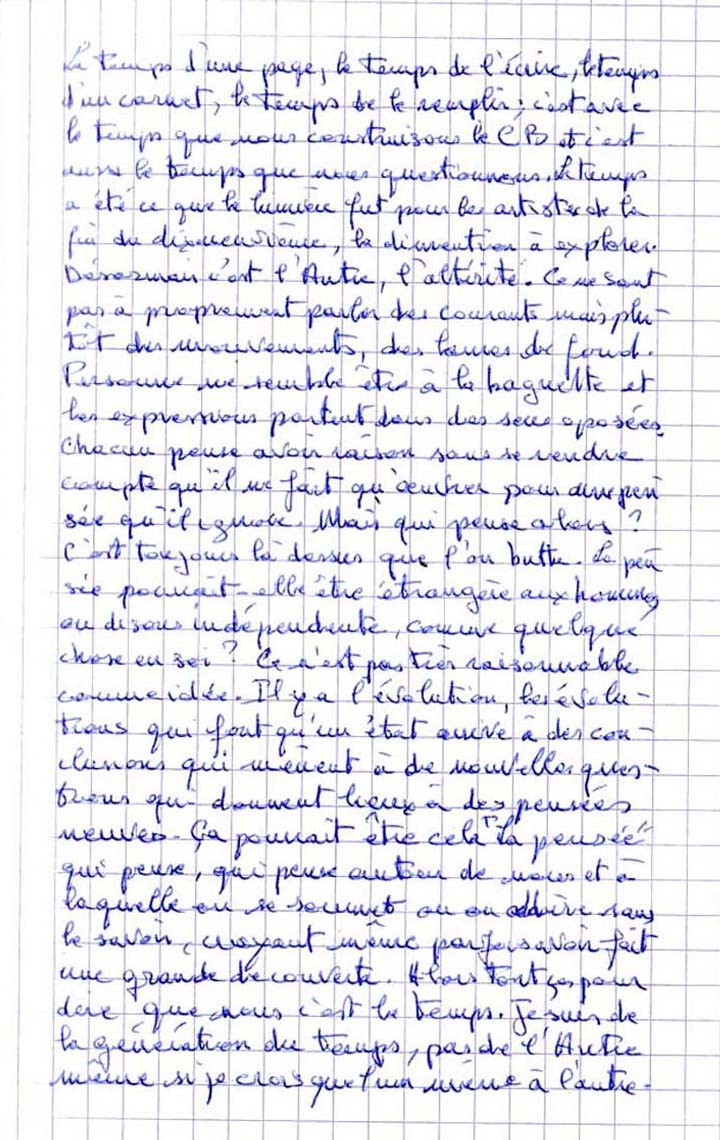 Le temps d'une page, le temps de l'écrire, le temps
d'un carnet, le temps de le remplir ; c'est avec
le temps que nous construisons le CB et c'est
aussi le temps que nous questionnons. Le temps
a été ce que la lumière fut pour les artistes de la
fin du dixneuvième, la dimention à explorer.
Désormais c'est l'Autre, l'altérité. Ce ne sont
pas à proprement parler des courants mais plu-
tôt des mouvements, des lames de fond.
Personne ne semble être à la baguette et
les expressions partent dans des sens oposées.
Chacun pense avoir raison sans se rendre
compte qu'il ne fait qu'œuvrer pour une pen
sée qu'il ignore. Mais qui pense alors ?
C'est toujours là dessus que l'on butte. La pen
sée pourrait-elle être étrangère aux hommes
ou disons indépendante, comme quelque
chose en soi ? Ce n'est pas très raisonnable
comme idée. Il y a l'évolution, les évolu-
tions qui font qu'un état arrive à des con-
clusions qui mènent à de nouvelles ques-
tions qui donnent lieux à des pensées
neuves. Ça pourrait être cela "la pensée"
qui pense, qui pense autour de nous et à
laquelle on se soumet ou on adhère sans
le savoir, croyant même parfois avoir fait
une grande découverte. Alors tout ça pour
dire que nous c'est le temps. Je suis de
la génération du temps, pas de l'Autre
même si je crois que l'un mène à l'autre.